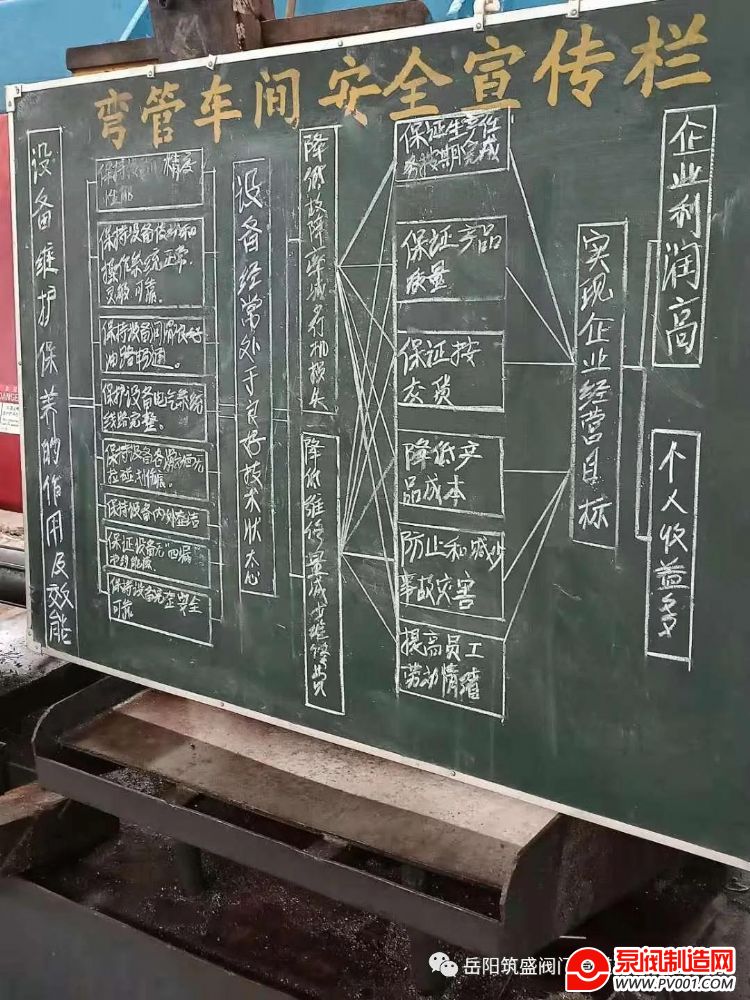 弯管车间安全宣传栏
设备维护保养的作用及效能
保持 精度
性能
保持设备
操作系统正常.
灵敏可靠。
保持设备润滑良好
油路畅通。
保护设备电气系统
线路完整。
保持设备各滑动面无
拉碰划伤痕。
保持设备内外整洁
保证设备无"四漏"
保持设备完整安全
可靠
设备经常处于良好技术状态
降低故障率减少停机损失
降低维修量减少维修费
保证生产任
务按期完成
保证产品
质量
保证按
交货
降低产
品成本
防止和减少
事故灾害
提高员工
劳动情绪
实现企业经营目标
企业利润高
个人收益多
岳阳筑盛阀门
泵阀制造网
www.PV001.com